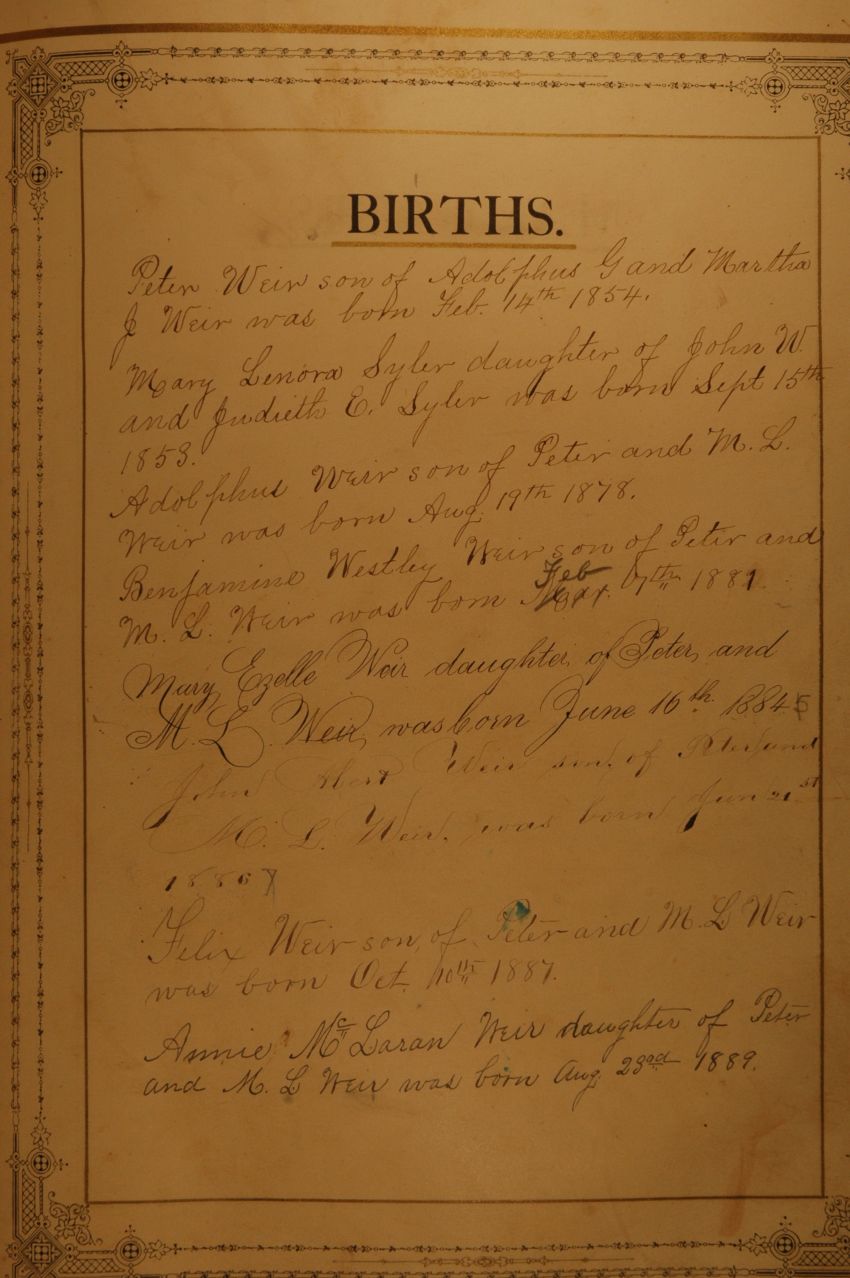 BIRTHS.
Peter Weir son of Adolphus G and Martha
J Weir was born Feb. 14th 1854.
Mary Lenora Syler daughter of John W.
and Judieth E. Syler was born Sept 15th
1853.
Adolphus Weir son of Peter and M. L.
Weir was born Aug. 19th 1878.
Benjamine Westley Weir son of Peter and
Feb
M. L. Weir was born 7th 1881.
Mary Ezelle Weir daughter, of Peter, and
M. L. Weir, was born June 16th 1884
John Weir son, of Peter, and
M. L. Weir, was born Jun 21st
1886
Felix Weir son, of Peter and M. L Weir
was born Oct. 10th 1887.
Annie McLaran Weir daughter of Peter
and M. L Weir was born Aug. 23rd 1889.